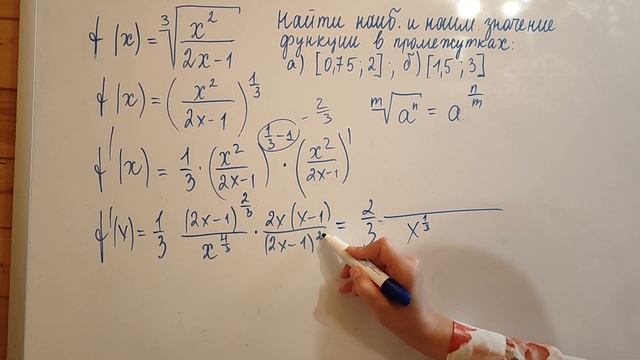 f(x) = ∛(x²/(2x-1))
Найти наиб. и наим. значение
функции в промежутках:
а) [0,75; 2]; б) [1,5; 3]
f(x) = (x²/(2x-1))^(1/3)
ᵐ√aⁿ = a^(n/m)
f'(x) = 1/3 · (x²/(2x-1))^(1/3-1) · (x²/(2x-1))'
-2/3
f'(x) = 1/3 (2x-1)^(2/3)/x^(4/3) · 2x(x-1)/(2x-1)² = 2/3 · /x^(1/3)